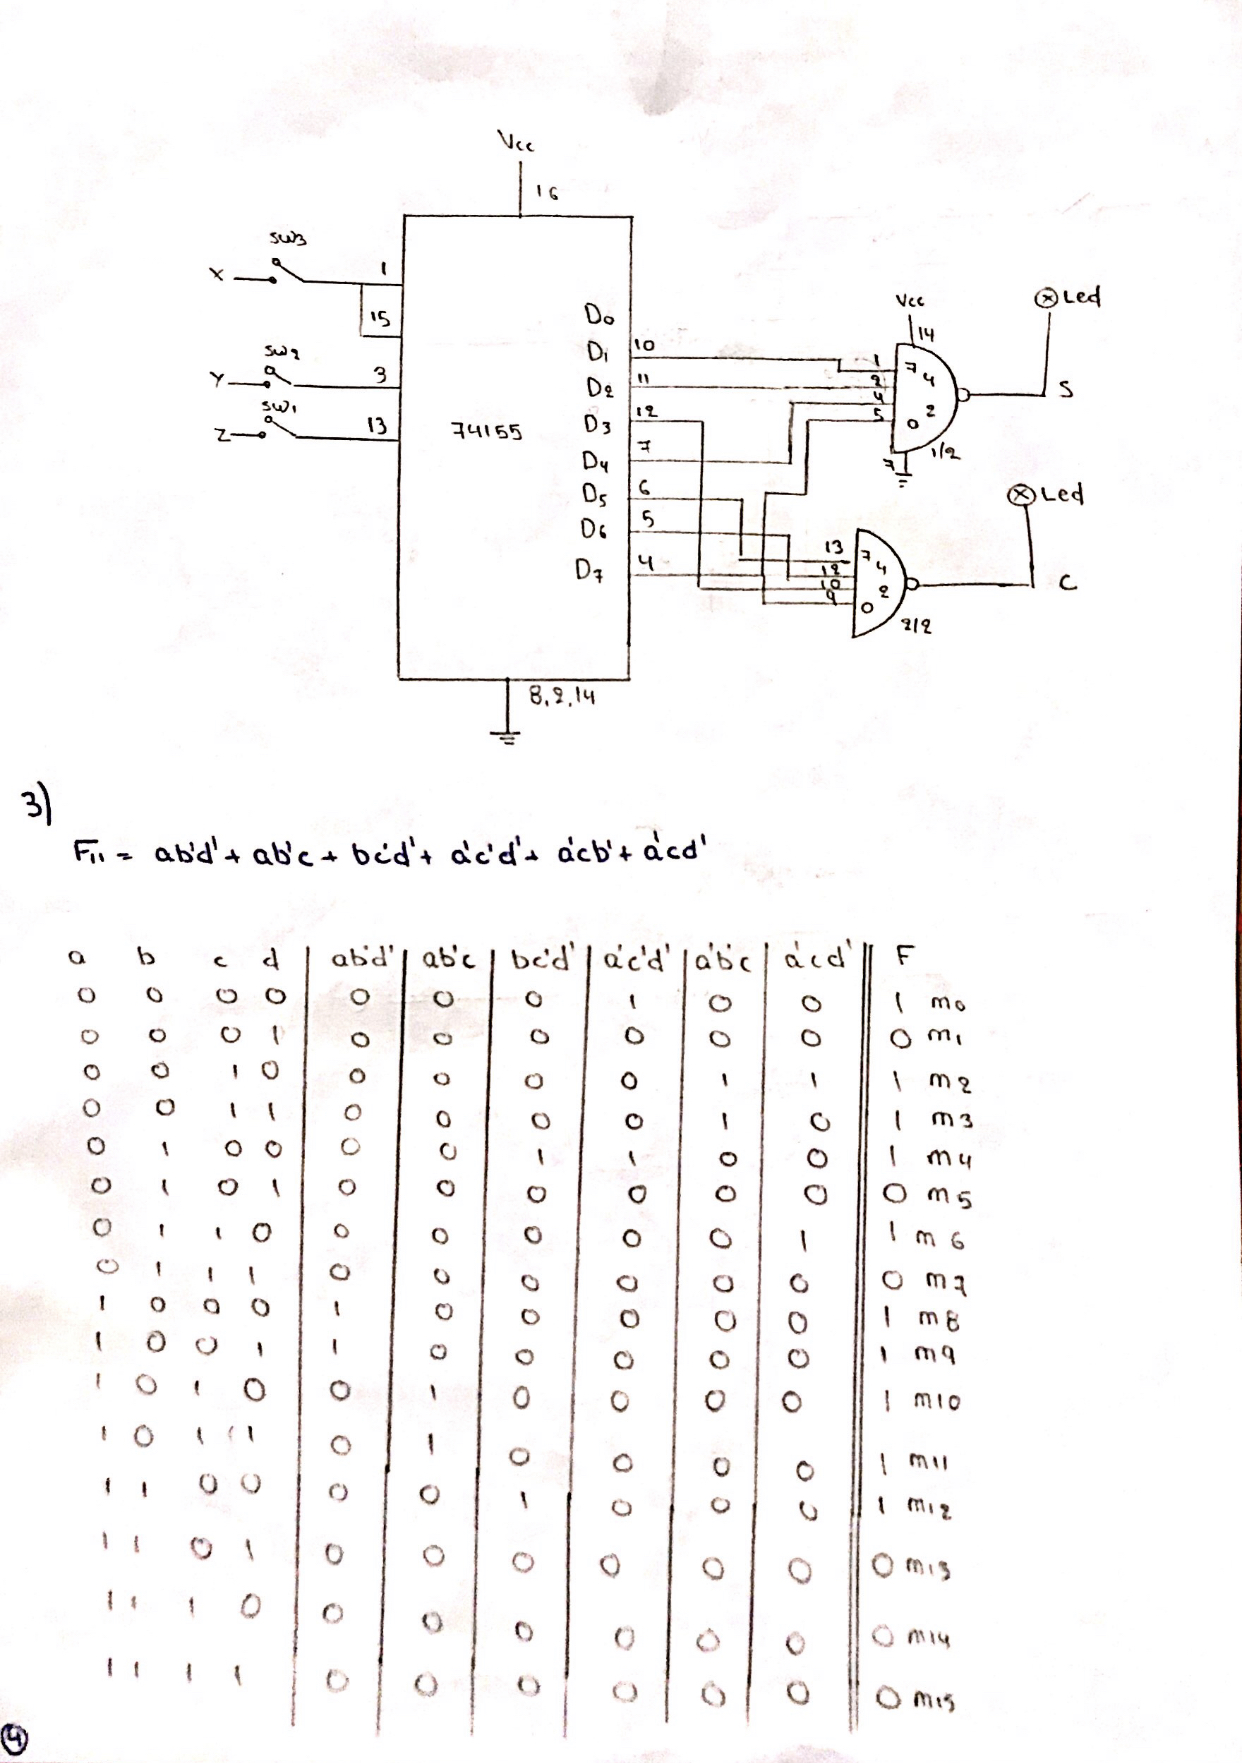 Vcc
16
SW3
X 1
15
SW2
Y 3
SW1
Z 13
74155
D0
D1 10
D2 11
D3 12
D4 7
D5 6
D6 5
D7 4
8,2,14
Vcc
14
1
2
4
5
7420
1/2
7
Led
S
13
12
10
9
7420
2/2
Led
C
3)
F11 = ab'd' + ab'c + bc'd' + a'c'd' + a'cb' + a'cd'
a b c d ab'd' ab'c bc'd' a'c'd' a'b'c a'cd' F
0 0 0 0 0 0 0 1 0 0 1 m0
0 0 0 1 0 0 0 0 0 0 0 m1
0 0 1 0 0 0 0 0 1 1 1 m2
0 0 1 1 0 0 0 0 1 0 1 m3
0 1 0 0 0 0 1 1 0 0 1 m4
0 1 0 1 0 0 0 0 0 0 0 m5
0 1 1 0 0 0 0 0 0 1 1 m6
0 1 1 1 0 0 0 0 0 0 0 m7
1 0 0 0 1 0 0 0 0 0 1 m8
1 0 0 1 1 0 0 0 0 0 1 m9
1 0 1 0 0 1 0 0 0 0 1 m10
1 0 1 1 0 1 0 0 0 0 1 m11
1 1 0 0 0 0 1 0 0 0 1 m12
1 1 0 1 0 0 0 0 0 0 0 m13
1 1 1 0 0 0 0 0 0 0 0 m14
1 1 1 1 0 0 0 0 0 0 0 m15
4